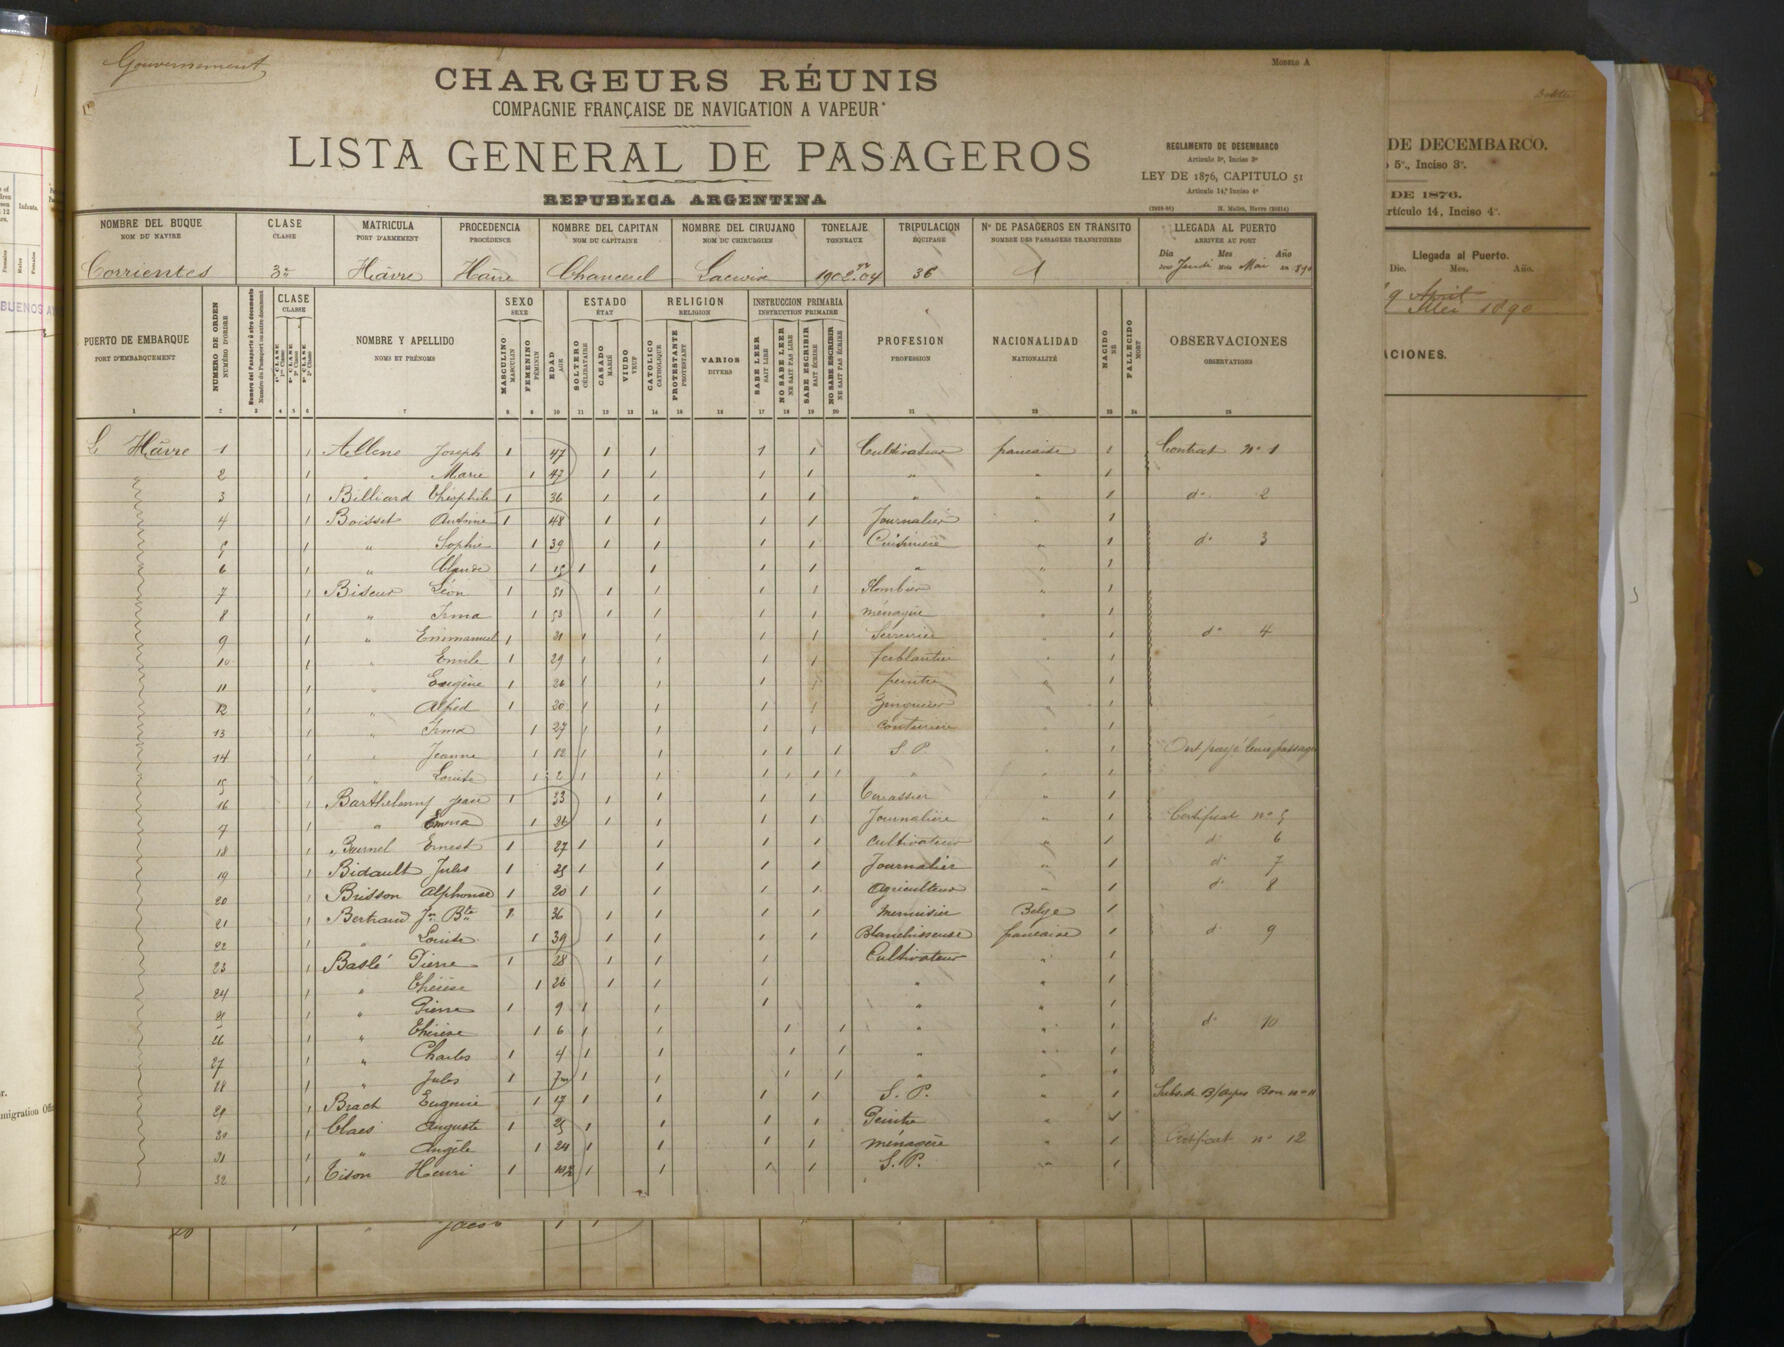 Gouvernement
MODELO A
CHARGEURS RÉUNIS
COMPAGNIE FRANÇAISE DE NAVIGATION A VAPEUR
LISTA GENERAL DE PASAGEROS
REPUBLICA ARGENTINA
REGLAMENTO DE DESEMBARCO
Artículo 5º, Inciso 3º
LEY DE 1876, CAPITULO 51
Artículo 14, Inciso 4º
NOMBRE DEL BUQUE CLASE MATRICULA PROCEDENCIA NOMBRE DEL CAPITAN NOMBRE DEL CIRUJANO TONELAJE TRIPULACION Nº DE PASAGEROS EN TRÁNSITO LLEGADA AL PUERTO
NOM DU NAVIRE CLASSE PORT D'ARMEMENT PROCÉDENCE NOM DU CAPITAINE NOM DU CHIRURGIEN TONNEAUX ÉQUIPAGE NOMBRE DES PASSAGERS TRANSITOIRES ARRIVÉE AU PORT
Dia Mes Año
Corrientes 3e Hâvre Hâvre 1902 04 36 1 Jeudi Mai 1890
PUERTO DE EMBARQUE NUMERO DE ORDEN CLASE NOMBRE Y APELLIDO SEXO EDAD ESTADO RELIGION INSTRUCCION PRIMARIA PROFESION NACIONALIDAD NACIDO FALLECIDO OBSERVACIONES
PORT D'EMBARQUEMENT NUMÉRO D'ORDRE CLASSE NOMS ET PRÉNOMS SEXE AGE ÉTAT RELIGION INSTRUCTION PRIMAIRE PROFESSION NATIONALITÉ NÉ MORT OBSERVATIONS
MASCULINO MASCULIN FEMENINO FÉMININ SOLTERO CÉLIBATAIRE CASADO MARIÉ VIUDO VEUF CATOLICO CATHOLIQUE PROTESTANTE PROTESTANT VARIOS DIVERS SABE LEER SAIT LIRE NO SABE LEER NE SAIT PAS LIRE SABE ESCRIBIR SAIT ÉCRIRE NO SABE ESCRIBIR NE SAIT PAS ÉCRIRE
1 2 3 4 5 6 7 8 9 10 11 12 13 14 15 16 17 18 19 20 21 22 23 24 25
Le Hâvre 1 1 Allene Joseph 1 47 1 1 1 1 Cultivateur française 1 Contrat nº 1
" 2 1 " Marie 1 47 1 1 1 1 " " 1
3 1 Billiard Théophile 1 36 1 1 1 1 " " 1 dº 2
4 1 Boisset Antoine 1 48 1 1 1 1 Journalier " 1
5 1 " Sophie 1 39 1 1 1 1 Cuisinière " 1 dº 3
6 1 " Claude 1 15 1 1 1 1 " " 1
7 1 Biseur Léon 1 51 1 1 1 1 Plombier " 1
8 1 " Irma 1 53 1 1 1 1 ménagère " 1
9 1 " Emmanuel 1 31 1 1 1 1 Serrurier " 1 dº 4
10 1 " Emile 1 29 1 1 1 1 ferblantier " 1
11 1 " Eugène 1 26 1 1 1 1 peintre " 1
12 1 " Alfred 1 20 1 1 1 1 Zingueur " 1
13 1 " Irma 1 27 1 1 1 1 couturière " 1
14 1 " Jeanne 1 12 1 1 1 1 1 S. P. " 1 Ont payé leur passage
15 1 " Louise 1 2 1 1 1 1 1 1 " " 1
16 1 Barthelemy Jean 1 33 1 1 1 1 Terrassier " 1
17 1 " Emma 1 26 1 1 1 1 Journalière " 1 Certificat nº 5
18 1 Ernest 1 27 1 1 1 1 Cultivateur " 1 dº 6
19 1 Bidault Jules 1 25 1 1 1 1 Journalier " 1 dº 7
20 1 Brisson Alphonse 1 20 1 1 1 1 Agriculteur " 1 dº 8
21 1 Bertrand Jn Bte 1 36 1 1 1 1 menuisier Belge 1
22 1 " Louise 1 39 1 1 1 1 Blanchisseuse française 1 dº 9
23 1 Baslé Pierre 1 28 1 1 1 Cultivateur " 1
24 1 " Thérèse 1 26 1 1 1 " " 1
25 1 " Pierre 1 9 1 1 1 " " 1
26 1 " Thérèse 1 6 1 1 1 1 " " 1 dº 10
27 1 " Charles 1 4 1 1 1 1 " " 1
28 1 " Jules 1 7m 1 1 1 1 " " 1
29 1 Brach Eugénie 1 17 1 1 1 1 S. P. " 1 Subside B/Ayres Bon nº 11
30 1 Claes Auguste 1 25 1 1 1 1 Peintre " 1
31 1 " Angèle 1 24 1 1 1 1 ménagère " 1 Certificat nº 12
32 1 Tison Henri 1 1 1 1 1 S. P. " 1
Jacob
DE DECEMBARCO.
5º., Inciso 3º.
DE 1876.
rtículo 14, Inciso 4º.
Llegada al Puerto.
Die. Mes. Año.
9 Avril
Mei 1890
CIONES.
BUENOS A
Infants.
migration Offi